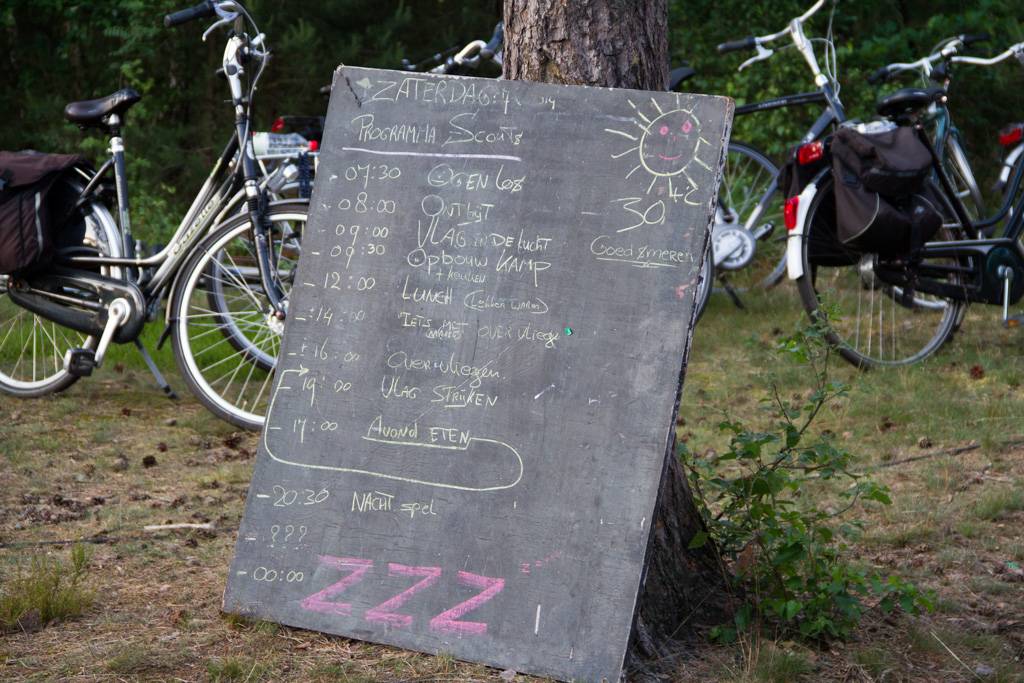 ZATERDAG:
PROGRAMMA Scouts
- 07:30 OGEN los
- 08:00 ONTbyT
- 09:00 VLAG in DE lucht
- 09:30 Opbouw KAMP
+ keuken
- 12:00 LUNCH (Lekker warm)
- 14:00 "IETS MET OVER vliege
- 16:00 Overvliegen.
- 19:00 VLAG StrijKEN
- 17:00 Avond ETEN
- 20:30 NACHT spel
- ???
- 00:00 ZZZ
- 30,
Goed smeren